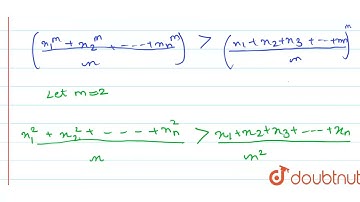 (x₁ᵐ + x₂ᵐ + ---- + xₙᵐ / n) > (x₁ + x₂ + x₃ + --- + n / n)ᵐ
Let m=2
x₁² + x₂² + ---- + xₙ² / n > x₁ + x₂ + x₃ + --- + xₙ / n²
doubtnut